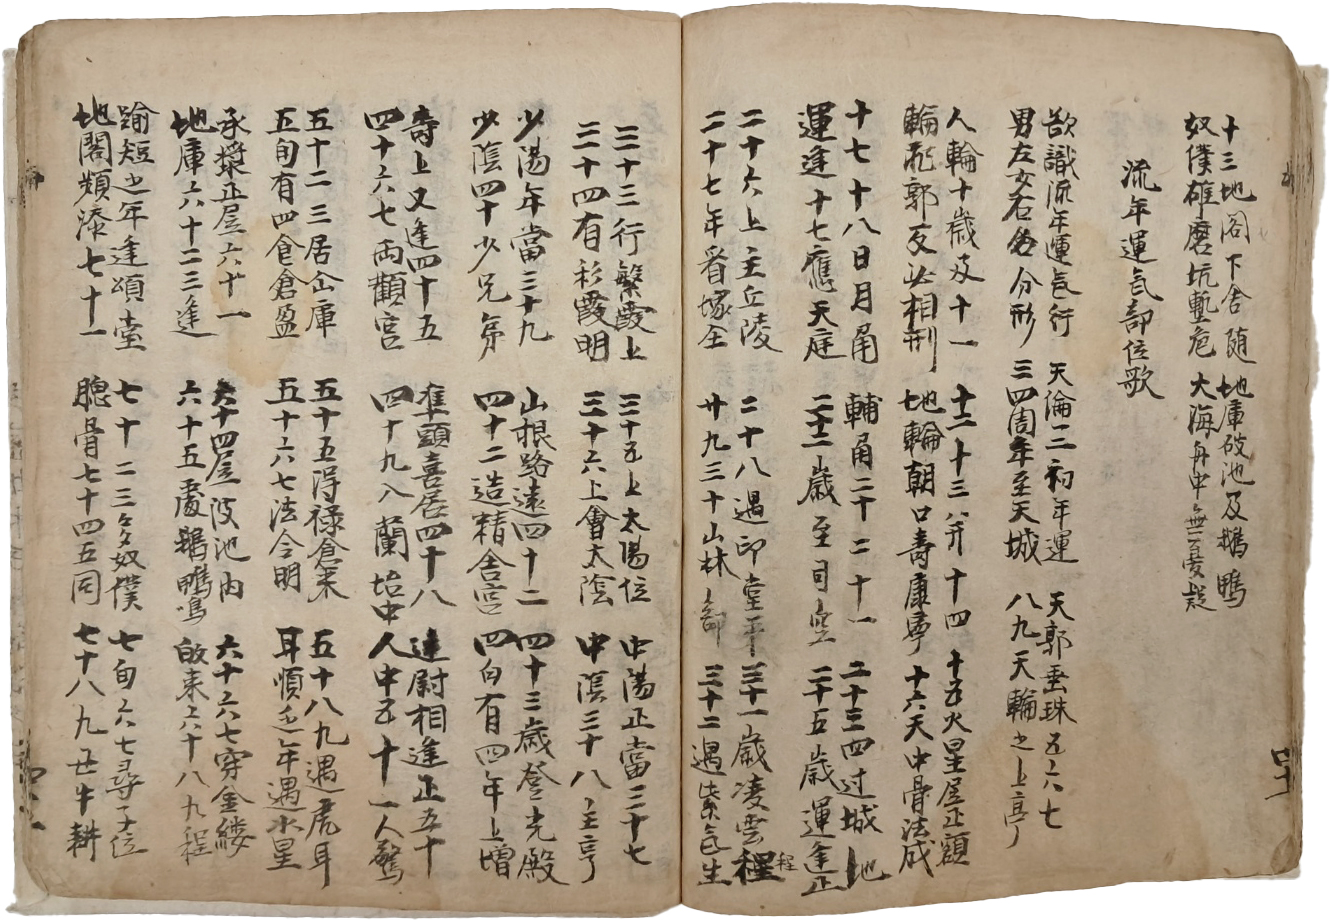 十三地閣下舍随　地庫破池及鵝鴨
奴僕碓磨坑塹危　大海舟中無憂疑
流年運气部位歌
欲識流年運气行　天倫二初年運　天郭垂珠五六七
男左女右各分形　三四周年至天城　八九天輪之上亨
人輪十歲及十一　十二十三八并十四　十五火星居正額
輪飛郭反必相刑　地輪朝口壽康寧　十六天中骨法成
十七十八日月角　輔角二十二十一　二十三四过城地
運逢十七應天庭　二十二歲至司空　二十五歲運逢正
二十六上主丘陵　二十八遇印堂平　三十一歲凌雲程程
二十七年看塚全　廿九三十山林部　三十二遇紫气生
三十三行繁霞上　三十五上太陽位　中陽正當三十七
三十四有彩霞明　三十六上會太陰　中陰三十八主亨
少陽年當三十九　山根路遠四十二　四十三歲登光殿
少陰四十少兄弟　四十二造精舍宮　四旬有四年上增
壽上又逢四十五　準頭喜居四十八　逢尉相逢正五十
四十六七両顴宮　四十九八蘭坮中　人中五十一人驚
五十二三居仙庫　五十五得禄倉米　五十八九遇虎耳
五旬有四食倉盈　五十六七法令明　耳順之年遇水星
承漿正居六十一　六十四居波池内　六十六七穿金縷
地庫六十二三逢　六十五處鵝鴨鳴　啟東六十八九程
踰短之年逢頌堂　七十二三多奴僕　七旬六七尋子位
地閣類漆七十一　聰骨七十四五同　七十八九丑牛耕